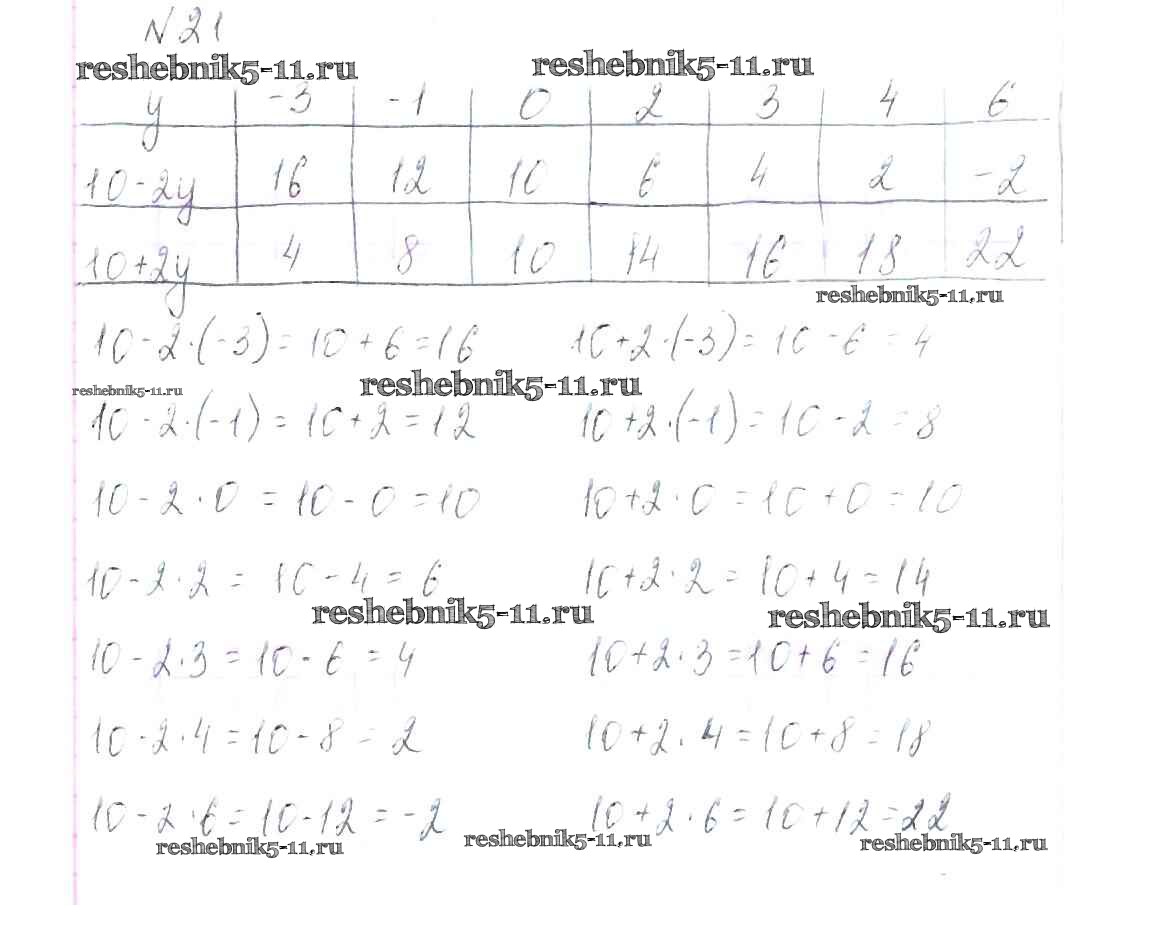 N 21
reshebnik5-11.ru reshebnik5-11.ru
y -3 -1 0 2 3 4 6
10-2y 16 12 10 6 4 2 -2
10+2y 4 8 10 14 16 18 22
reshebnik5-11.ru
10-2·(-3)=10+6=16 10+2·(-3)=10-6=4
reshebnik5-11.ru reshebnik5-11.ru
10-2·(-1)=10+2=12 10+2·(-1)=10-2=8
10-2·0=10-0=10 10+2·0=10+0=10
10-2·2=10-4=6 10+2·2=10+4=14
reshebnik5-11.ru reshebnik5-11.ru
10-2·3=10-6=4 10+2·3=10+6=16
10-2·4=10-8=2 10+2·4=10+8=18
10-2·6=10-12=-2 10+2·6=10+12=22
reshebnik5-11.ru reshebnik5-11.ru reshebnik5-11.ru